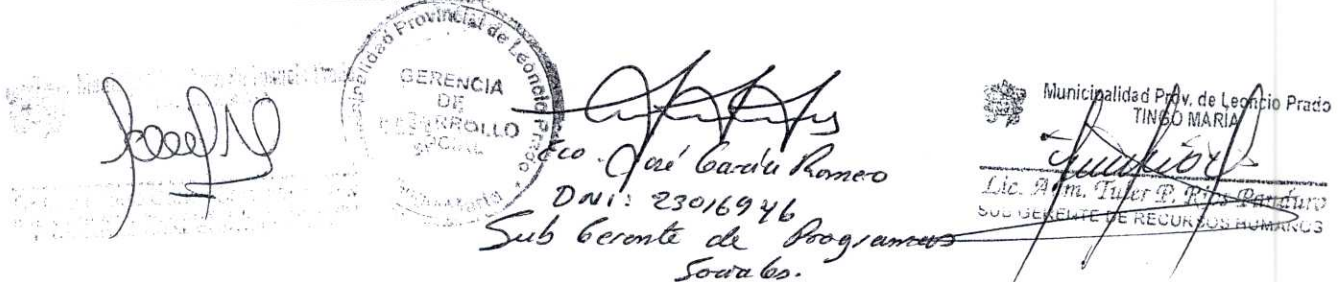 Municipalidad Provincial de Leoncio Prado
GERENCIA
DE
DESARROLLO
SOCIAL
Eco. José García Romero
DNI: 23016946
Sub Gerente de Programas
Sociales.
Municipalidad Prov. de Leoncio Prado
TINGO MARIA
Lic. Adm. Tuler P. Rios Panduro
SUB GERENTE DE RECURSOS HUMANOS